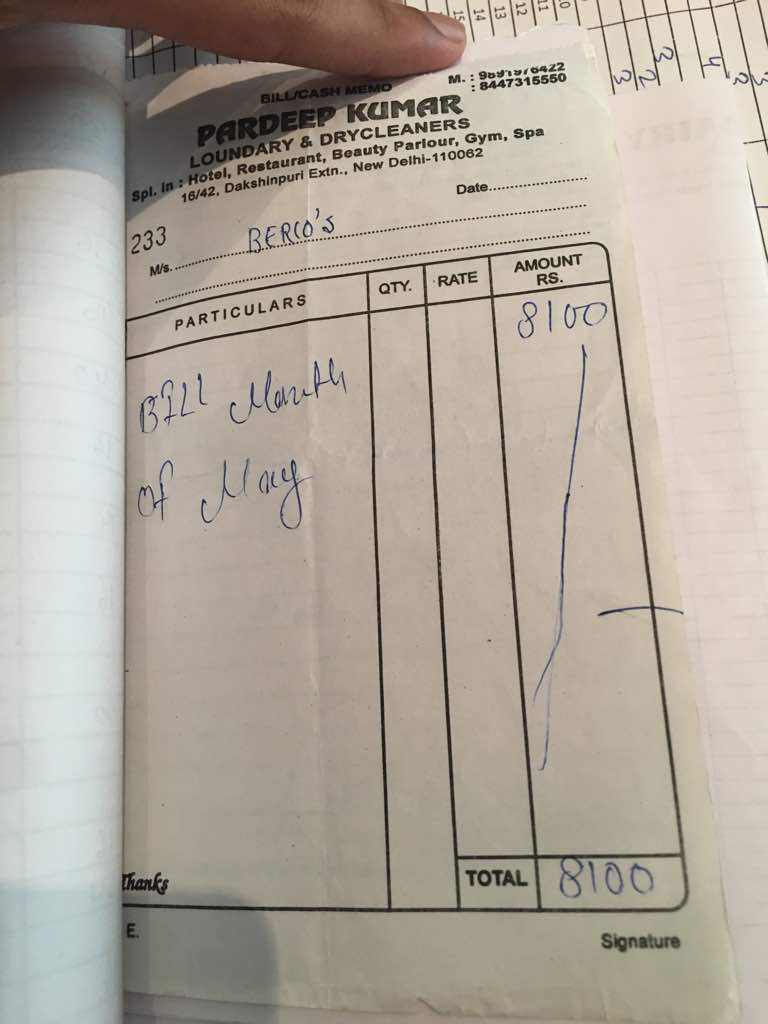 BILL/CASH MEMO
M. : 9891976422
: 8447315550
PARDEEP KUMAR
LOUNDARY & DRYCLEANERS
Spl. in : Hotel, Restaurant, Beauty Parlour, Gym, Spa
16/42, Dakshinpuri Extn., New Delhi-110062
Date
233
M/s. BERCO'S
PARTICULARS QTY. RATE AMOUNT RS.
8100
Bill Month
of May
Thanks
TOTAL 8100
E.
Signature
10
11
12
13
14
15